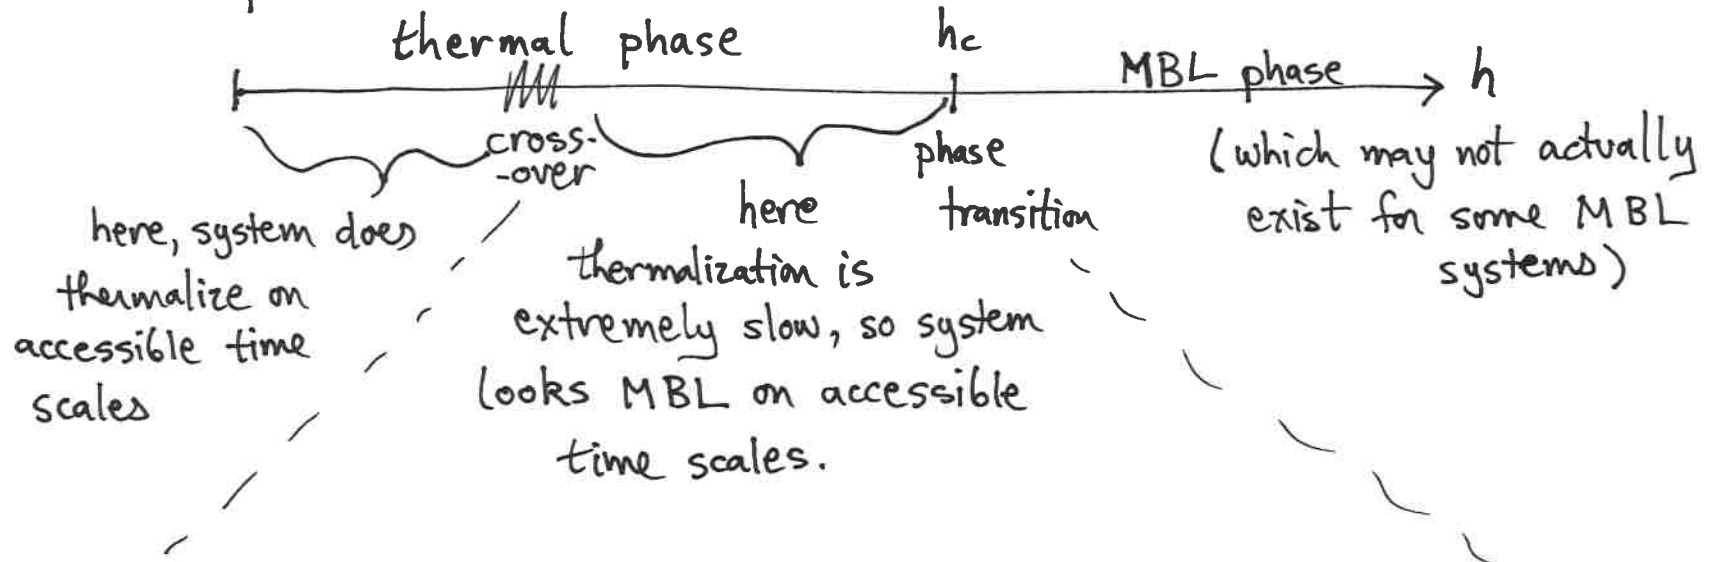 thermal phase
h_c
MBL phase
h
cross-
-over
phase
transition
(which may not actually
exist for some MBL
systems)
here, system does
thermalize on
accessible time
scales
here
thermalization is
extremely slow, so system
looks MBL on accessible
time scales.